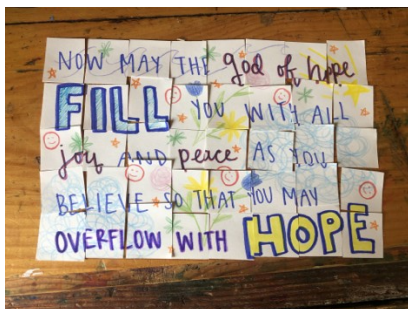 NOW MAY THE god of hope
FILL YOU WITH ALL
joy AND peace AS YOU
BELIEVE SO THAT YOU MAY
OVERFLOW WITH HOPE